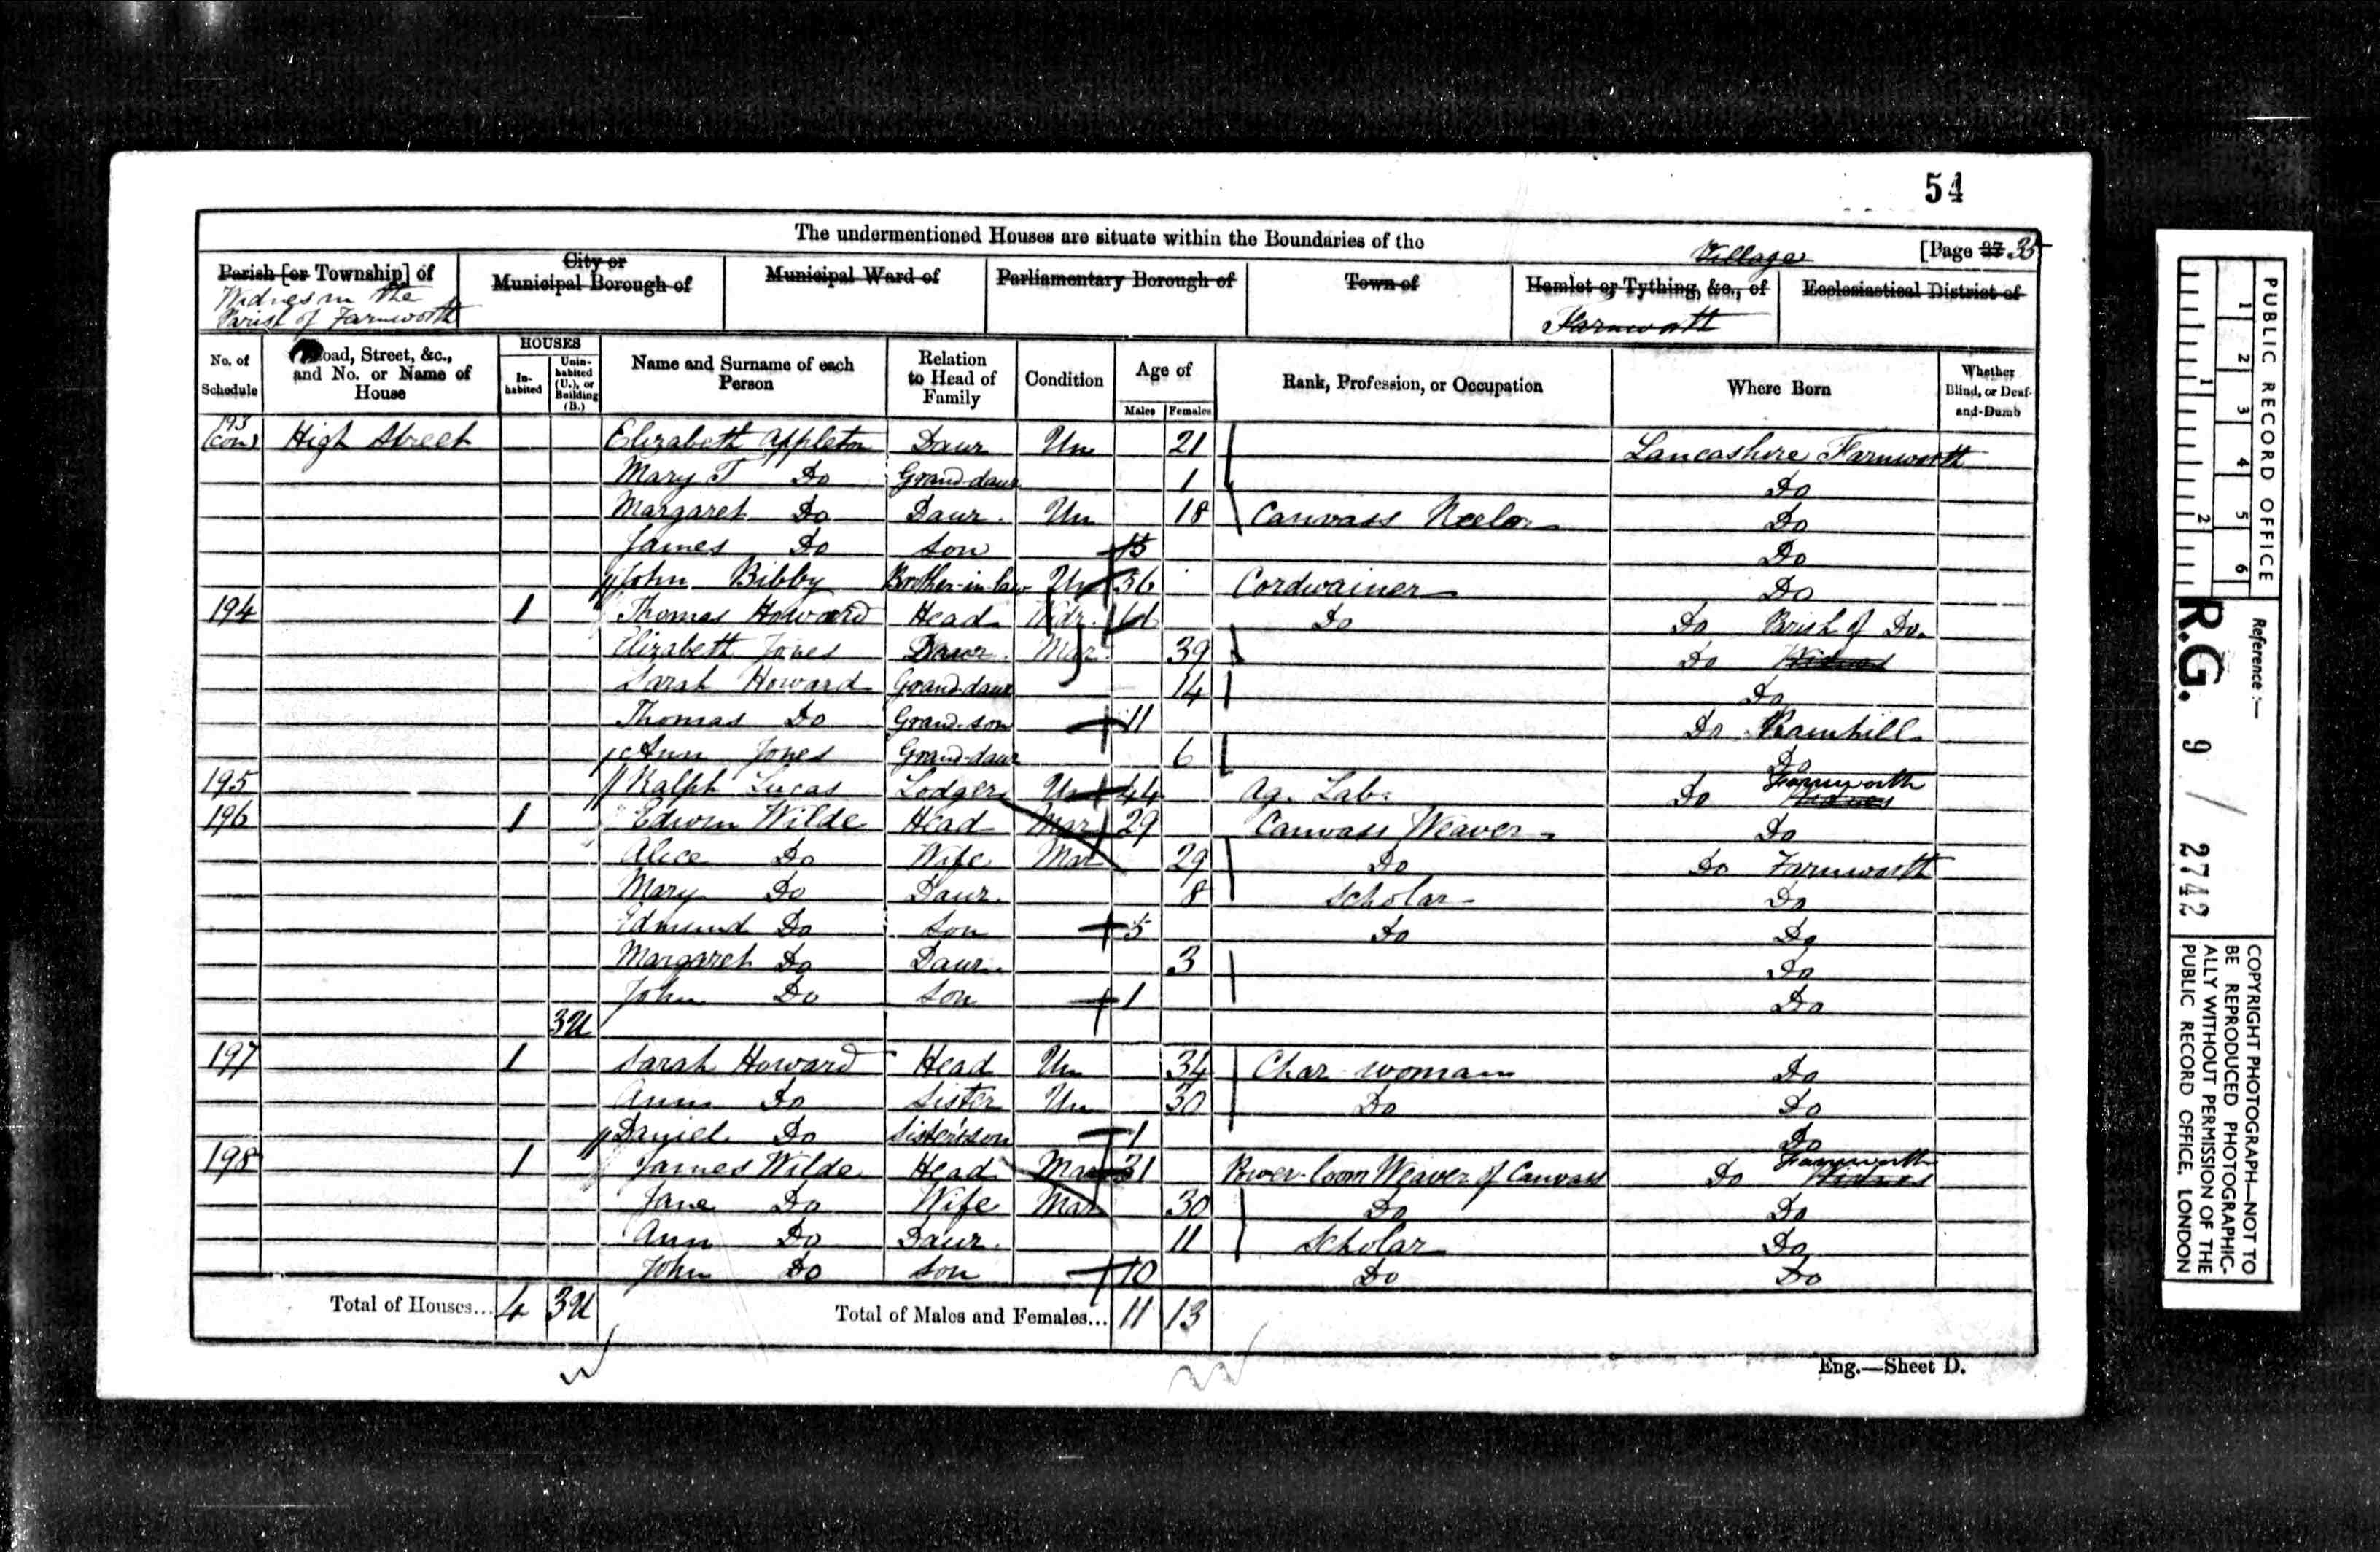 54
The undermentioned Houses are situate within the Boundaries of the
[Page 27 35
Parish [or Township] of
Widnes in the
Parish of Farnworth
City or
Municipal Borough of
Municipal Ward of
Parliamentary Borough of
Town of
Village
Hamlet or Tything, &c., of
Farnworth
Ecclesiastical District of
No. of Schedule
Road, Street, &c., and No. or Name of House
HOUSES
In-habited
Unin-habited (U.), or Building (B.)
Name and Surname of each Person
Relation to Head of Family
Condition
Age of
Males
Females
Rank, Profession, or Occupation
Where Born
Whether Blind, or Deaf-and-Dumb
193 (Con) High Street Elizabeth Appleton Daur Un 21 Lancashire Farnworth
Mary T Do Grand-daur 1 Do
Margaret Do Daur. Un 18 Canvass Do
James Do Son 15 Do
John Bibby Brother-in-law Un 36 Cordwainer Do
194 1 Thomas Howard Head Widr. Do Do Prish of Do.
Elizabeth Jones Daur. Mar. 39 Do Widnes
Sarah Howard Grand-daur 14 Do
Thomas Do Grand-son 11 Do Rainhill
Ann Jones Grand-daur 6 Do
195 Ralph Lucas Lodger Un 44 Ag. Lab. Do Farnworth Widnes
196 1 Edwin Wilde Head Mar 29 Canvass Weaver Do
Alice Do Wife Mar 29 Do Do Farnworth
Mary Do Daur. 8 Scholar Do
Edmund Do Son 5 Do Do
Margaret Do Daur. 3 Do
John Do Son 1 Do
3U
197 1 Sarah Howard Head Un 34 Char-woman Do
Ann Do Sister Un 30 Do Do
Daniel Do Sister's son 1 Do
198 1 James Wilde Head Mar 31 Power-loom Weaver of Canvass Do Farnworth Widnes
Jane Do Wife Mar 30 Do Do
Ann Do Daur. 11 Scholar Do
John Do Son 10 Do Do
Total of Houses... 4 3U Total of Males and Females... 11 13
Eng.—Sheet D.
PUBLIC RECORD OFFICE
1 2 3 4 5 6
1 2
Reference:—
R.G. 9 / 2742
COPYRIGHT PHOTOGRAPH—NOT TO
BE REPRODUCED PHOTOGRAPHIC-
ALLY WITHOUT PERMISSION OF THE
PUBLIC RECORD OFFICE, LONDON